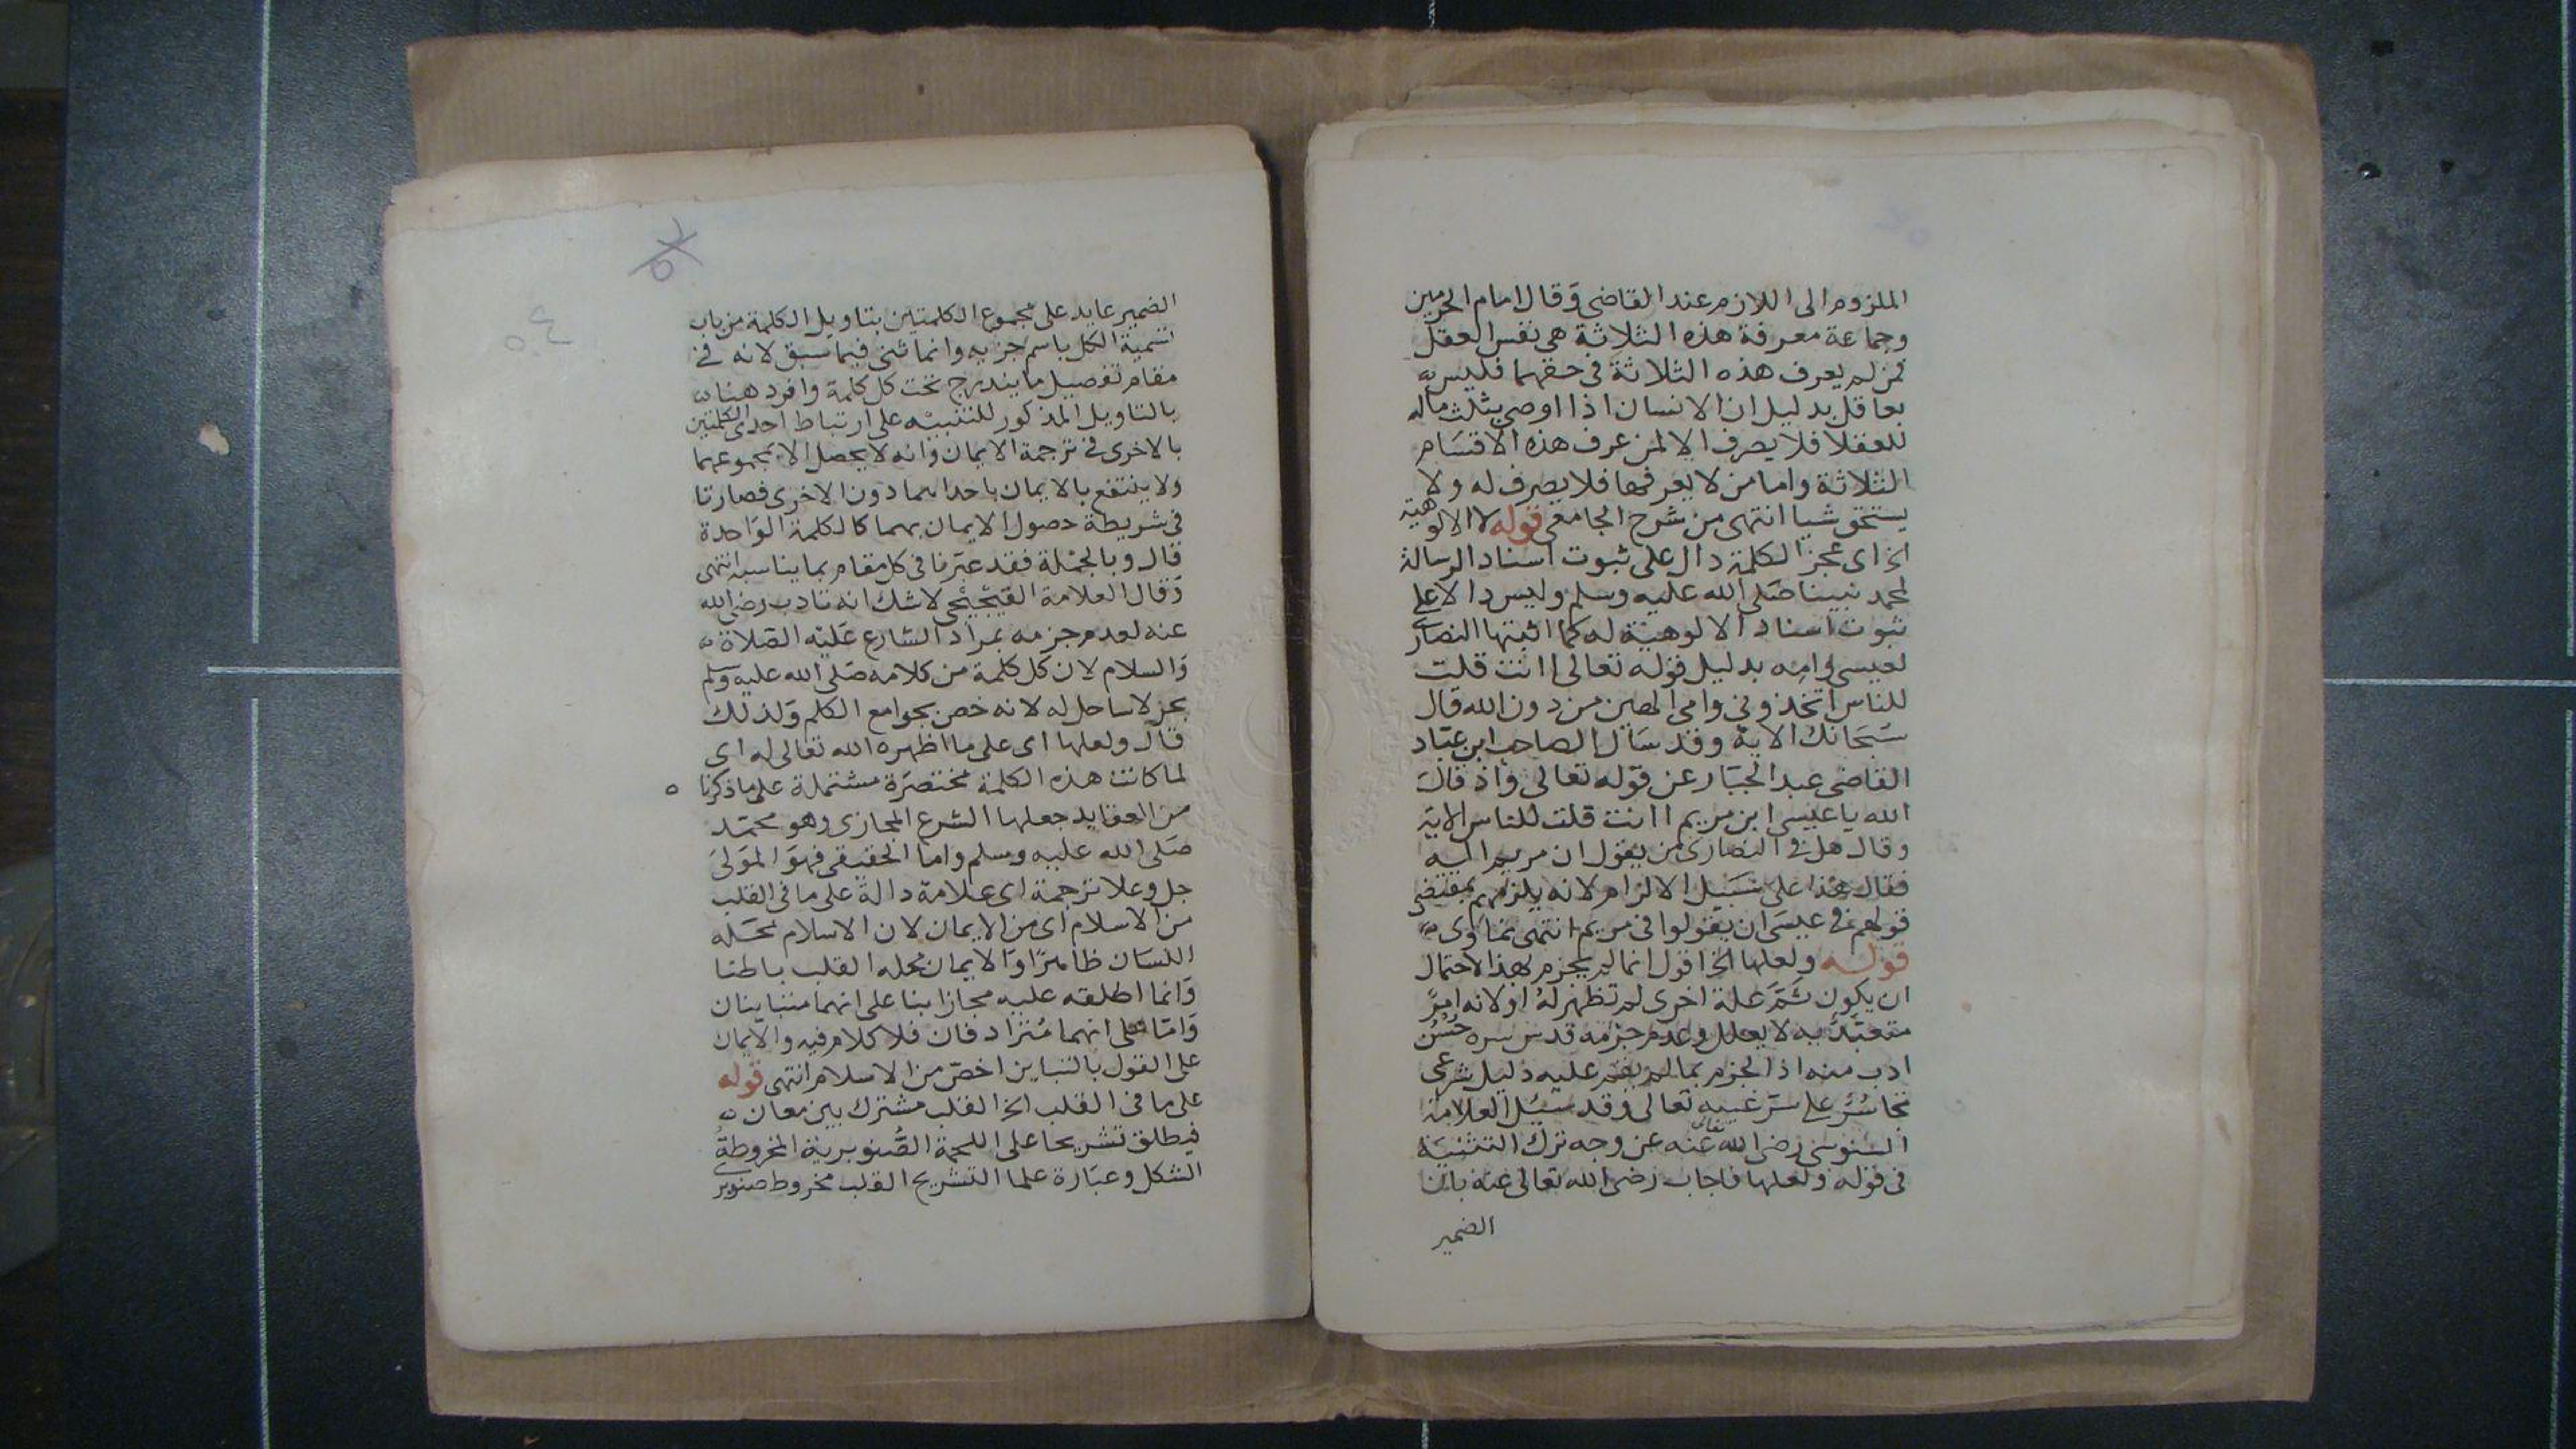 الملزوم الى اللازم عند القاضى وقال امام الحرمين
وجماعة معرفة هذه الثلاثة هى نفس العقل
فمن لم يعرف هذه الثلاثة فى حقهما فليس
بعاقل بدليل ان الانسان اذا اوصى بثلث ماله
للعقلا فلا يصرف الا لمن عرف هذه الاقسام
الثلاثة واما من لا يعرفها فلا يصرف له ولا
يستحق شيا انتهى من شرح الجامعى قوله لا الالوهية
الخ اى عجز الكلمة دال على ثبوت اسناد الرسالة
لمحمد نبينا صلى الله عليه وسلم وليس دالا على
ثبوت اسناد الالوهية له كما اثبتها النصارى
لعيسى وامه بدليل قوله تعالى اانت قلت
للناس اتخذونى وامى الهين من دون الله قال
سبحانك الاية وقد سال الصاحب ابن عباد
القاضى عبد الجبار عن قوله تعالى واذ قال
الله يا عيسى ابن مريم اانت قلت للناس الاية
وقال هل فى النصارى من يقول ان مريم اليه
فقال هذا على سبيل الالزام لانه يلزمهم بمقتضى
قولهم فى عيسى ان يقولوا فى مريم انتهى تتاوى
قوله ولعلها الخ اقول انما لم يجزم لهذا الاحتمال
ان يكون ثم علة اخرى لم تظهر له او لانه امر
متعبد به لا يعلل وعدم جزمه قدس سره حسن
ادب منه اذ الجزم بما لم يقم عليه دليل شرعى
تجاسر على سر غيبه تعالى وقد سيل العلامة
السنوسى رضى الله تعالى عنه عن وجه ترك التثنية
فى قوله ولعلها فاجاب رضى الله تعالى عنه بان
الضمير
الضمير عايد على مجموع الكلمتين بتاويل الكلمة من باب
تسمية الكل باسم جزيه وانما ثنى فيما سبق لانه فى
مقام تفصيل ما يندرج تحت كل كلمة وافرد هنا
بالتاويل المذكور للتنبيه على ارتباط احدى الكلمتين
بالاخرى فى ترجمة الايمان وانه لا يحصل الا بمجموعهما
ولا ينتفع بالايمان باحداهما دون الاخرى فصارتا
فى شريطة حصول الايمان بهما كالكلمة الواحدة
قال وبالجملة فقد عبرنا فى كل مقام بما يناسبه انتهى
وقال العلامة القيجيجى لا شك انه تادب رضى الله
عنه لعدم جزمه بمراد الشارع عليه الصلاة
والسلام لان كل كلمة من كلامه صلى الله عليه وسلم
بحر لا ساحل له لانه خص بجوامع الكلم ولذلك
قال ولعلها اى على ما اظهره الله تعالى له اى
لما كانت هذه الكلمة مختصرة مشتملة على ما ذكرنا
من العقايد جعلها الشرع المجازى وهو محمد
صلى الله عليه وسلم واما الحقيقى فهو المولى
جل وعلا ترجمة اى علامة دالة على ما فى القلب
من الاسلام اى من الايمان لان الاسلام محله
اللسان ظاهرا والايمان محله القلب باطنا
وانما اطلقه عليه مجازا بنا على انهما متباينان
واما على انهما مترادفان فلا كلام فيه والايمان
على القول بالتباين اخص من الاسلام انتهى قوله
على ما فى القلب الخ القلب مشترك بين معان
فيطلق تشريحا على اللحمة الصنوبرية المخروطة
الشكل وعبارة علما التشريح القلب مخروط صنوبرى